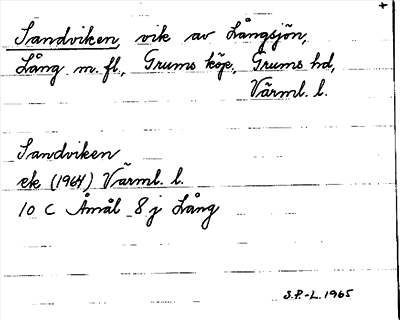 +
Sandviken, vik av Långsjön,
Lång m. fl., Grums köp., Grums hd,
Värml. l.
Sandviken
ek (1964) Värml. l.
10 C Åmål 8 j Lång
S.P.-L. 1965